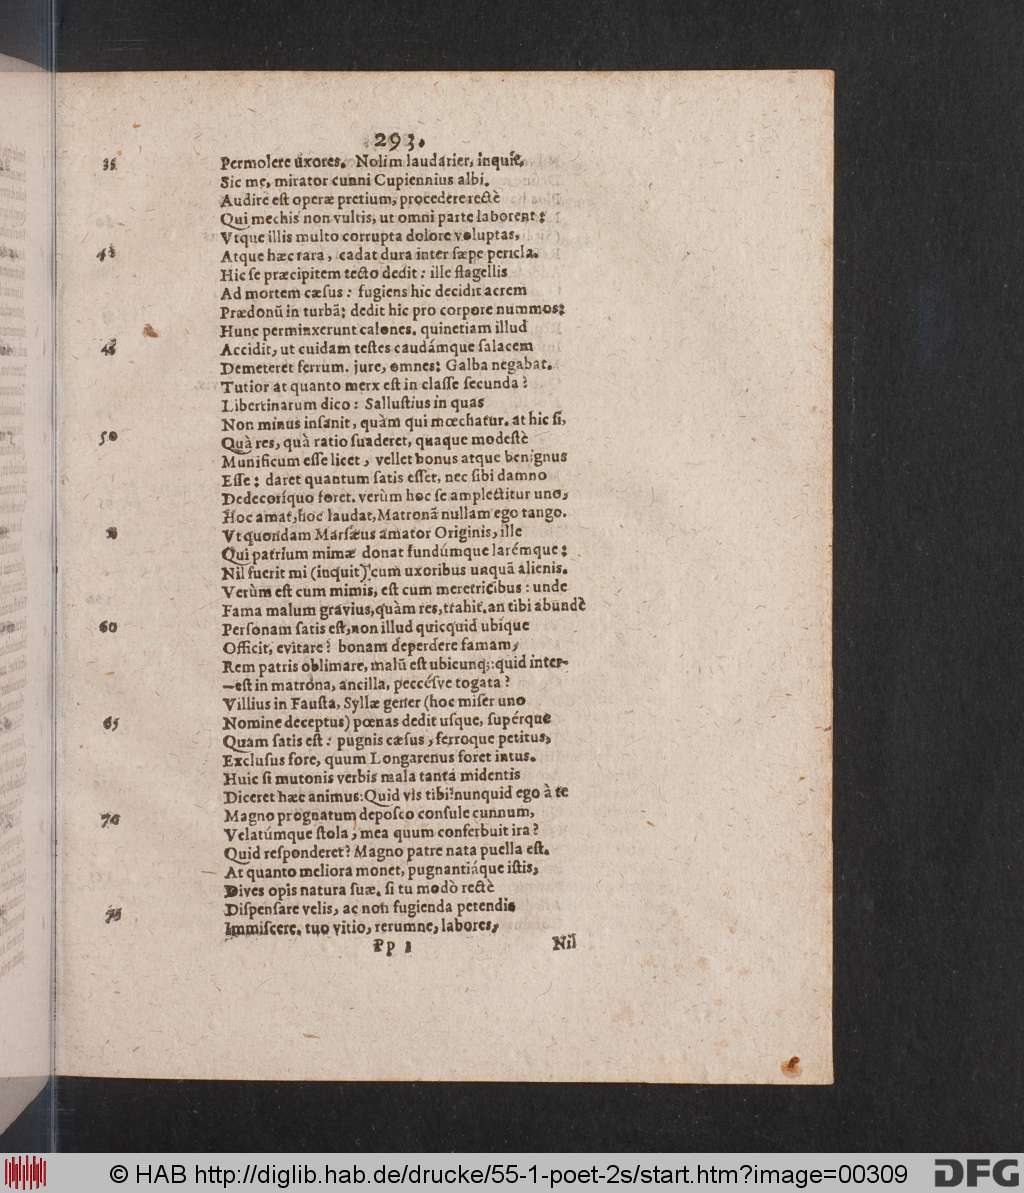 293.
35 Permolere uxores. Nolim laudarier, inquit,
Sic me, mirator cunni Cupiennius albi.
Audire est operæ pretium, procedere rectè
Qui mechis non vultis, ut omni parte laborent:
Vtque illis multo corrupta dolore voluptas,
Atque hæc rara, cadat dura inter sæpe pericla.
Hic se præcipitem tecto dedit: ille flagellis
Ad mortem cæsus: fugiens hic decidit acrem
Prædonũ in turbã: dedit hic pro corpore nummos:
Hunc perminxerunt calones. quinetiam illud
Accidit, ut cuidam testes caudámque salacem
Demeteret ferrum. jure, omnes: Galba negabat.
Tutior at quanto merx est in classe secunda?
Libertinarum dico: Sallustius in quas
Non minus insanit, quàm qui mœchatur. at hic si,
50 Quà res, quà ratio suaderet, quaque modestè
Munificum esse licet, vellet bonus atque benignus
Esse: daret quantum satis esset, nec sibi damno
Dedecoríquo foret. verùm hoc se amplectitur uno,
Hoc amat, hoc laudat, Matronã nullam ego tango.
Vt quondam Marsæus amator Originis, ille
Qui patrium mimæ donat fundúmque larémque:
Nil fuerit mi (inquit) cum uxoribus unquã alienis.
Verùm est cum mimis, est cum meretricibus: unde
Fama malum gravius, quàm res, trahit. an tibi abundè
60 Personam satis est, non illud quicquid ubique
Officit, evitare? bonam deperdere famam,
Rem patris oblimare, malũ est ubicunq;: quid inter-
—est in matrona, ancilla, peccésve togata?
Villius in Fausta, Syllæ gener (hoc miser uno
65 Nomine deceptus) pœnas dedit usque, supérque
Quam satis est: pugnis cæsus, ferroque petitus,
Exclusus fore, quum Longarenus foret intus.
Huic si mutonis verbis mala tanta midentis
Diceret hæc animus: Quid vis tibi? nunquid ego à te
70 Magno prognatum deposco consule cunnum,
Velatúmque stola, mea quum conferbuit ira?
Quid responderet? Magno patre nata puella est.
At quanto meliora monet, pugnantiáque istis,
Dives opis natura suæ. si tu modò rectè
75 Dispensare velis, ac non fugienda petendis
Immiscere. tuo vitio, rerumne, labores,
Pp 1 Nil
© HAB http://diglib.hab.de/drucke/55-1-poet-2s/start.htm?image=00309 DFG